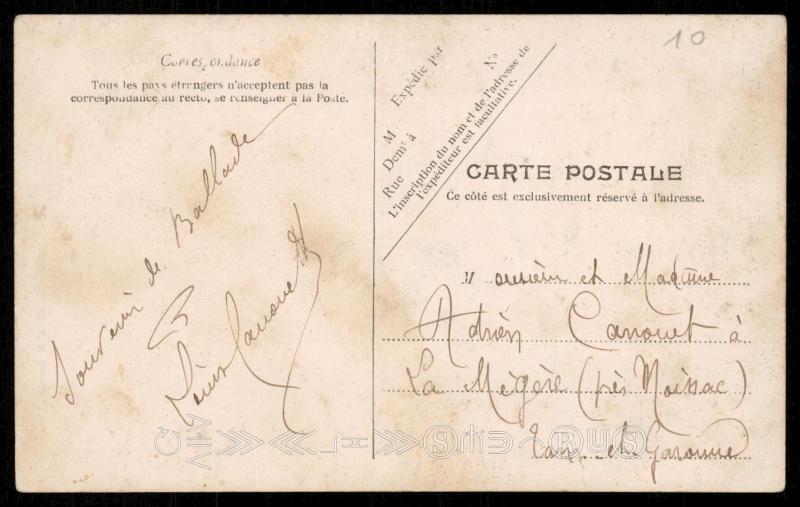 Correspondance
Tous les pays étrangers n'acceptent pas la
correspondance au recto, se renseigner à la Poste.
Souvenir de Ballade
Louis Canouet
Expédié par
M
Demt à
Rue
N°
L'inscription du nom et de l'adresse de
l'expéditeur est facultative.
10
CARTE POSTALE
Ce côté est exclusivement réservé à l'adresse.
Monsieur et Madame
Adrien Canouet à
La Mégère (près Moissac)
Tarn et Garonne